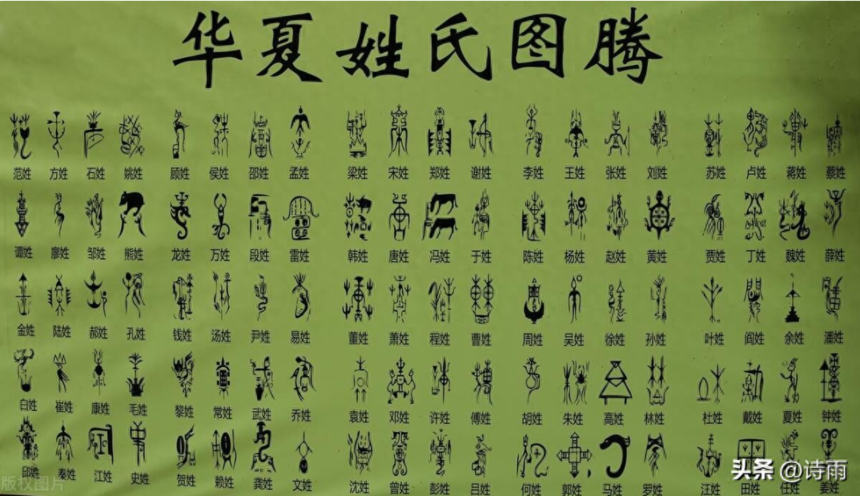 华夏姓氏图腾
范姓 方姓 石姓 姚姓 顾姓 侯姓 邵姓 孟姓 梁姓 宋姓 郑姓 谢姓 李姓 王姓 张姓 刘姓 苏姓 卢姓 蒋姓 蔡姓
谭姓 廖姓 邹姓 熊姓 龙姓 万姓 段姓 雷姓 韩姓 唐姓 冯姓 于姓 陈姓 杨姓 赵姓 黄姓 贾姓 丁姓 魏姓 薛姓
金姓 陆姓 郝姓 孔姓 钱姓 汤姓 尹姓 易姓 董姓 萧姓 程姓 曹姓 周姓 吴姓 徐姓 孙姓 叶姓 阎姓 余姓 潘姓
白姓 崔姓 康姓 毛姓 黎姓 常姓 武姓 乔姓 袁姓 邓姓 许姓 傅姓 胡姓 朱姓 高姓 林姓 杜姓 戴姓 夏姓 钟姓
邱姓 秦姓 江姓 史姓 贺姓 赖姓 龚姓 文姓 沈姓 曾姓 彭姓 吕姓 何姓 郭姓 马姓 罗姓 汪姓 田姓 任姓 姜姓
版权图片
头条 @诗雨